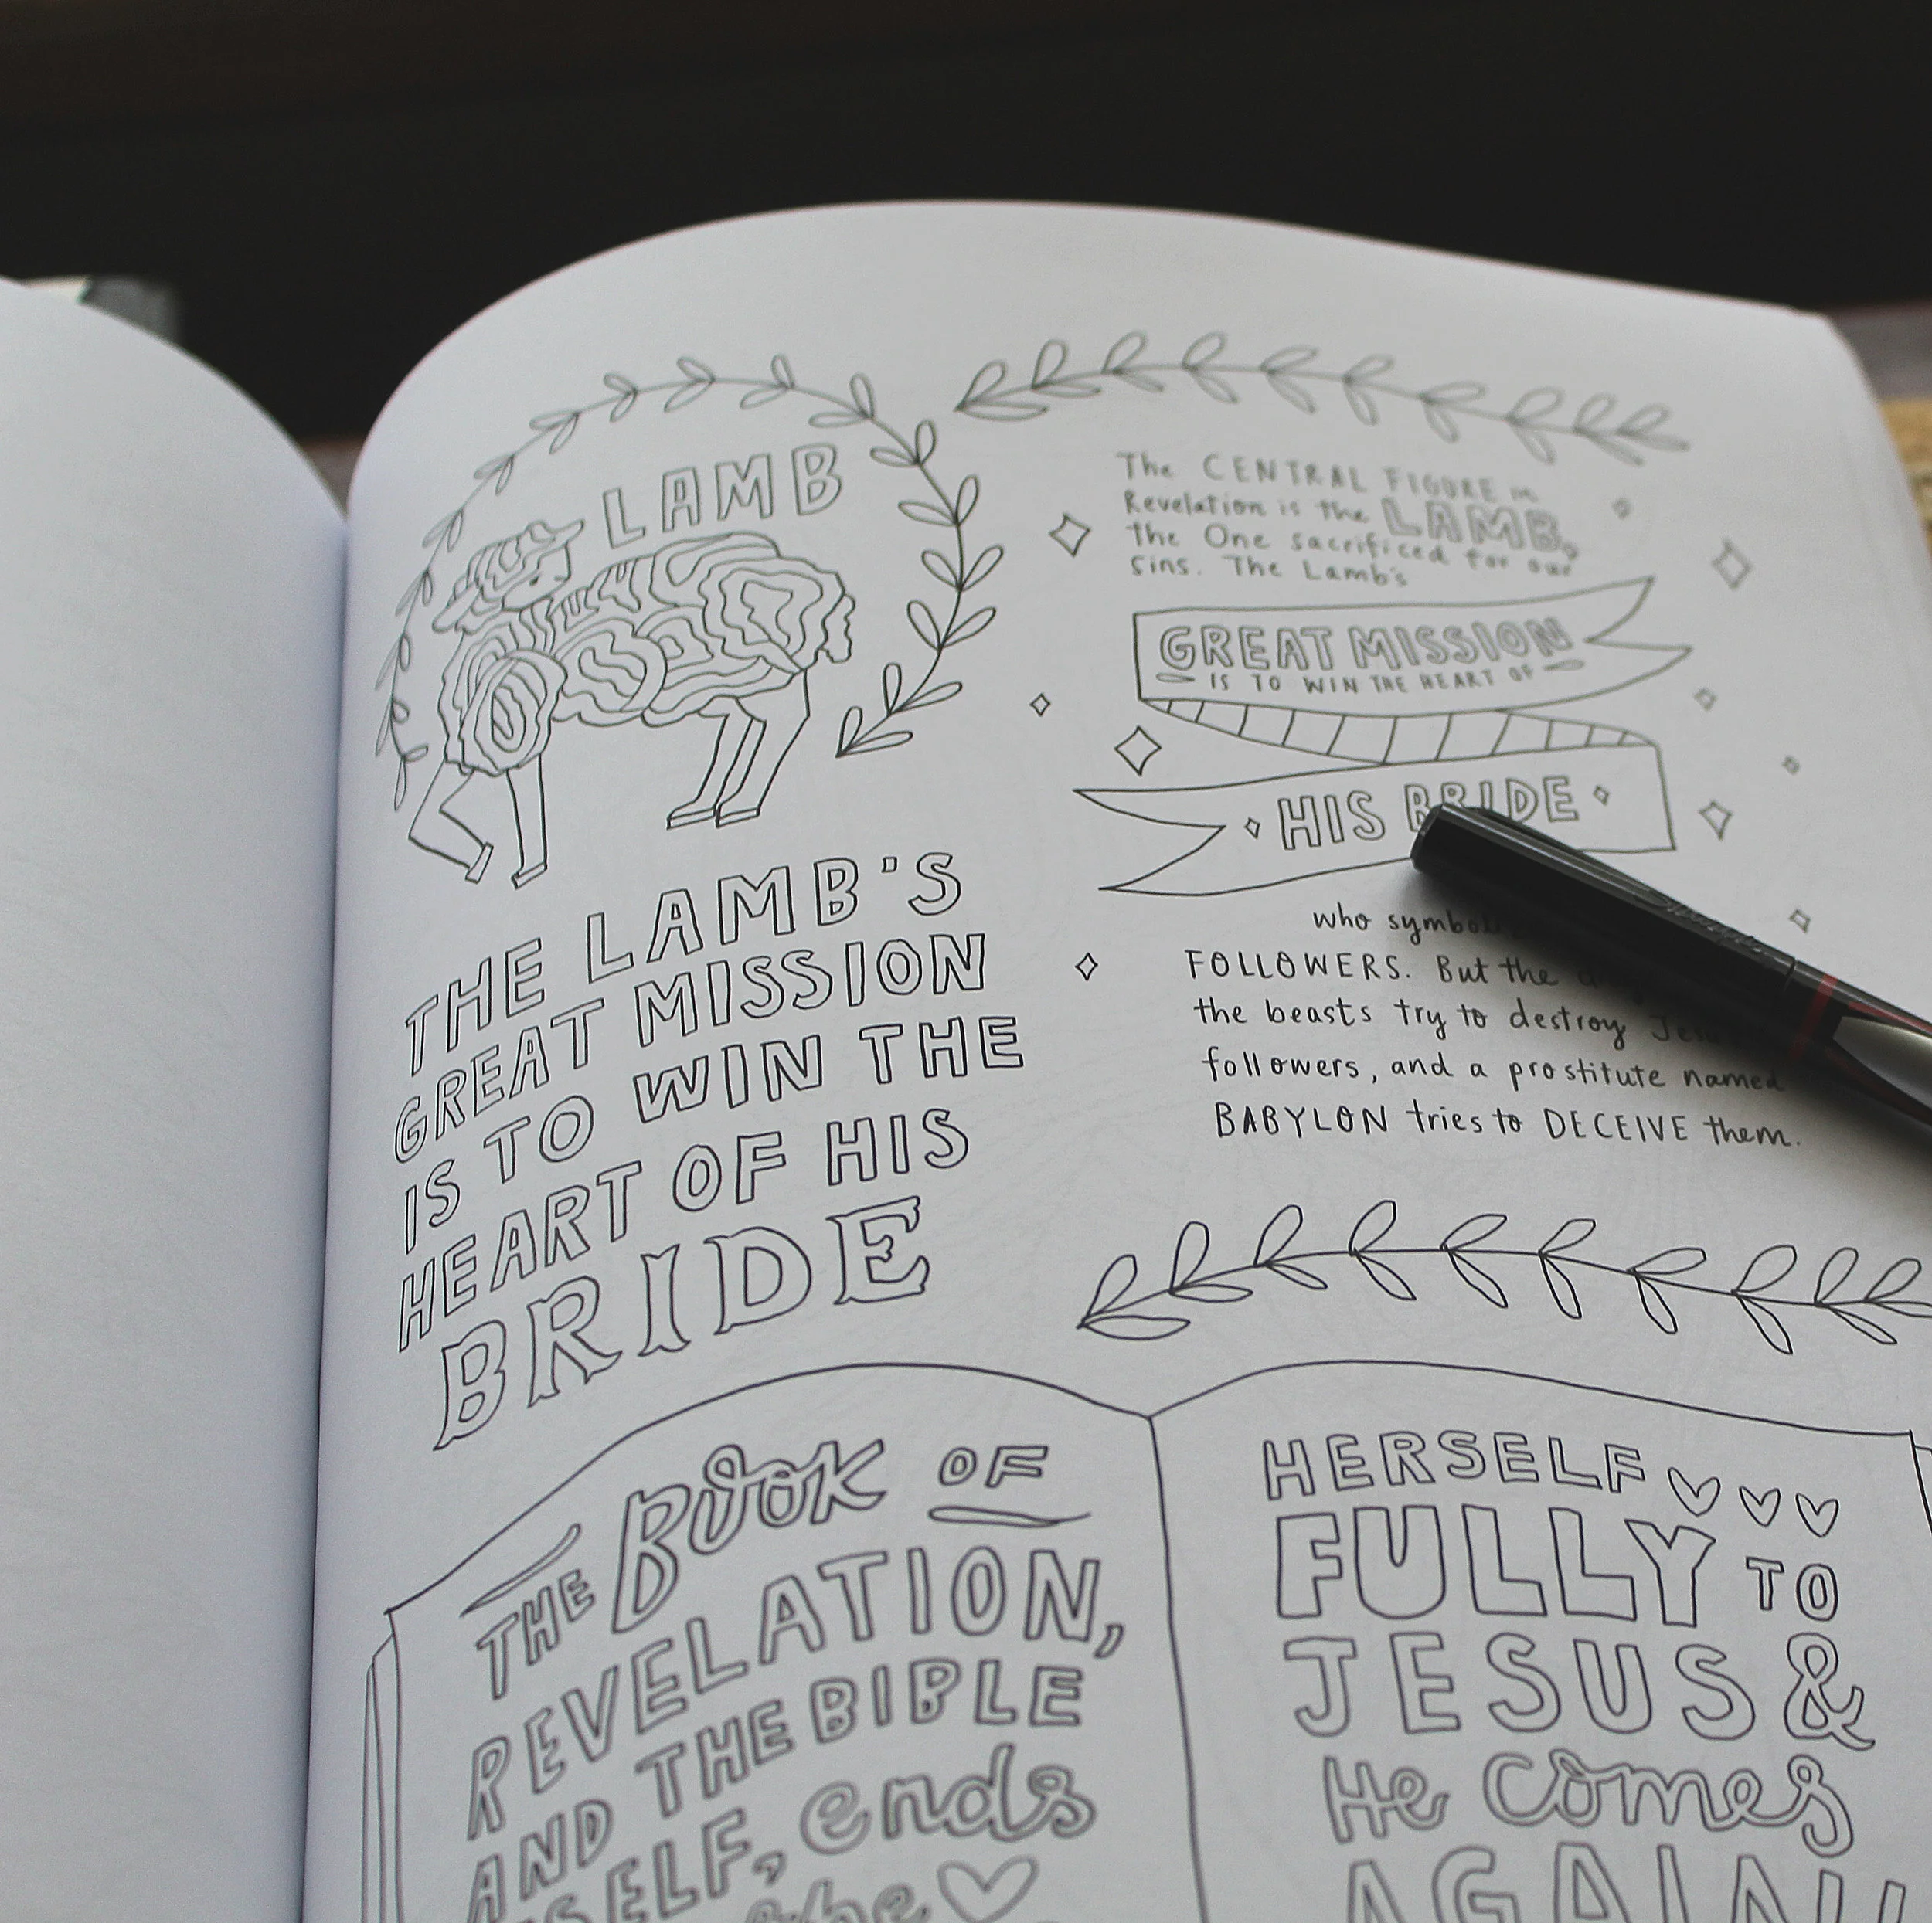 LAMB
THE LAMB'S
GREAT MISSION
IS TO WIN THE
HEART OF HIS
BRIDE
The CENTRAL FIGURE in
Revelation is the LAMB,
the One sacrificed for our
sins. The Lamb's
GREAT MISSION
IS TO WIN THE HEART OF
HIS BRIDE
who
FOLLOWERS. But the
the beasts try to destroy
followers, and a prostitute named
BABYLON tries to DECEIVE them.
THE BOOK OF
REVELATION,
AND THE BIBLE
ends
HERSELF
FULLY TO
JESUS &
He comes
AGAIN!